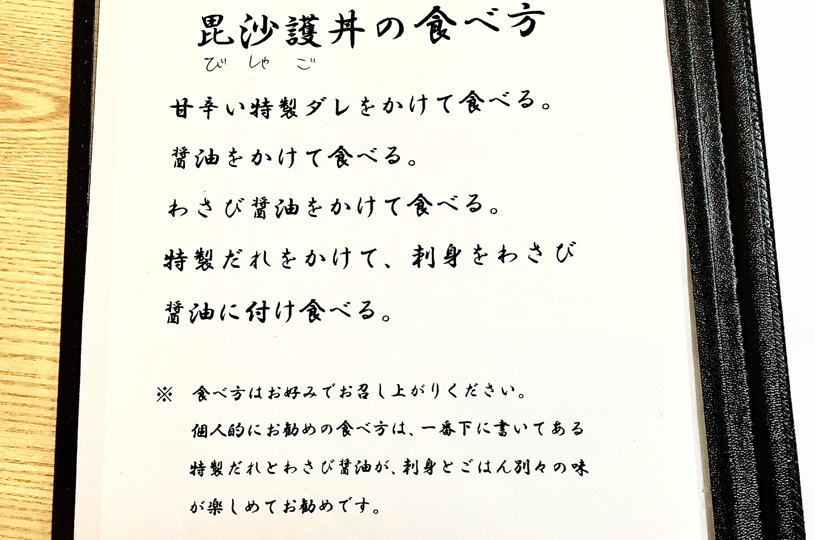 毘沙護丼の食べ方
びしゃご
甘辛い特製ダレをかけて食べる。
醤油をかけて食べる。
わさび醤油をかけて食べる。
特製だれをかけて、刺身をわさび
醤油に付け食べる。
※ 食べ方はお好みでお召し上がりください。
個人的にお勧めの食べ方は、一番下に書いてある
特製だれとわさび醤油が、刺身とごはん別々の味
が楽しめてお勧めです。